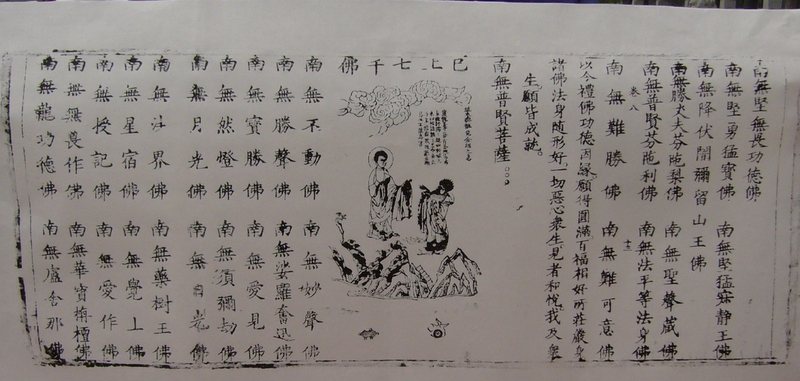 南無堅無畏功德佛
南無堅猛寂静王佛
南無堅勇猛寳佛
南無降伏闇彌留山王佛
南無勝大大芬陁梨佛
南無聖聲蔵佛
南無普賢芬陁利佛
南無法平等法身佛
卷八
南無難勝佛
南無難可意佛
以今禮佛功德因緣願得圓滿百福相好所莊嚴身
諸佛法身随形好一切惡心衆生見者和悅我及衆
生願皆成就
南無普賢菩薩
已上七千佛
南無不動佛
南無妙聲佛
南無勝聲佛
南無娑羅奮迅佛
南無寳勝佛
南無愛見佛
南無然燈佛
南無須彌劫佛
南無月光佛
南無日光佛
南無法界佛
南無藥樹王佛
南無星宿佛
南無覺上佛
南無授記佛
南無愛作佛
南無無畏作佛
南無華寳栴檀佛
南無龍功德佛
南無盧舍那佛